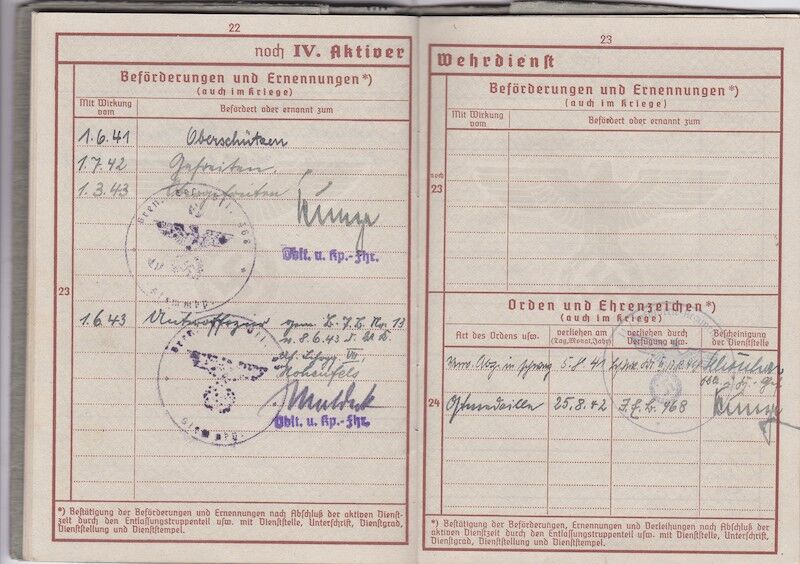 22
noch IV. Aktiver
Beförderungen und Ernennungen*)
(auch im Kriege)
Mit Wirkung vom
Befördert oder ernannt zum
1.6.41 Oberschützen
1.7.42 Gefreiten.
1.3.43 Obergefreiten
Oblt. u. Kp.-Fhr.
23
1.6.43 Unteroffizier
Hohenfels
Oblt. u. Kp.-Fhr.
*) Bestätigung der Beförderungen und Ernennungen nach Abschluß der aktiven Dienst-
zeit durch den Entlassungstruppenteil usw. mit Dienststelle, Unterschrift, Dienstgrad,
Dienststellung und Dienststempel.
23
Wehrdienst
Beförderungen und Ernennungen*)
(auch im Kriege)
Mit Wirkung vom
Befördert oder ernannt zum
noch
23
Orden und Ehrenzeichen*)
(auch im Kriege)
Art des Ordens usw.
verliehen am
(Tag, Monat, Jahr)
verliehen durch
Verfügung usw.
Bescheinigung
der Dienststelle
5.8.41
24
Ostmedaille 25.8.42 468
*) Bestätigung der Beförderungen, Ernennungen und Verleihungen nach Abschluß der
aktiven Dienstzeit durch den Entlassungstruppenteil usw. mit Dienststelle, Unterschrift,
Dienstgrad, Dienststellung und Dienststempel.